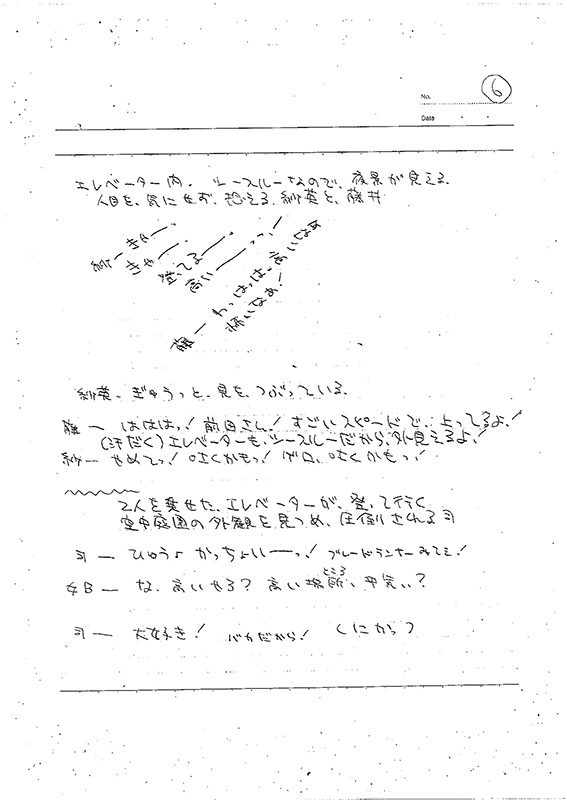 No. ⑥
Date ・ ・
エレベーター内。シースルーなので、夜景が見える。
人目を、気にせず、怯える。紗英と、藤井
紗ー きゃー、
きゃー、
登ってるー、
怖いーっ、!
藤ー わっはっはー!
怖いなあ、
高いなあ
紗英、ぎゅうっと、目を、つぶっている。
藤ー はははっ!前田さん!すごいスピードで、上ってるよ!
(汗だく)エレベーターも、シースルーだから、外見えるよ!
紗ー やめてっ!吐くかもっ!ゲロ、吐くかもっ!
2人を乗せた、エレベーターが、登って行く
空中庭園の外観を見つめ、圧倒されるヨ
ヨー ひゅうょ かっちょいーっ!ブレードランナーみてえ!
女B ー な、高いやろ?高い場所、平気ぃ?
ところ
ヨー 大好き! バカだから! (にかっ)